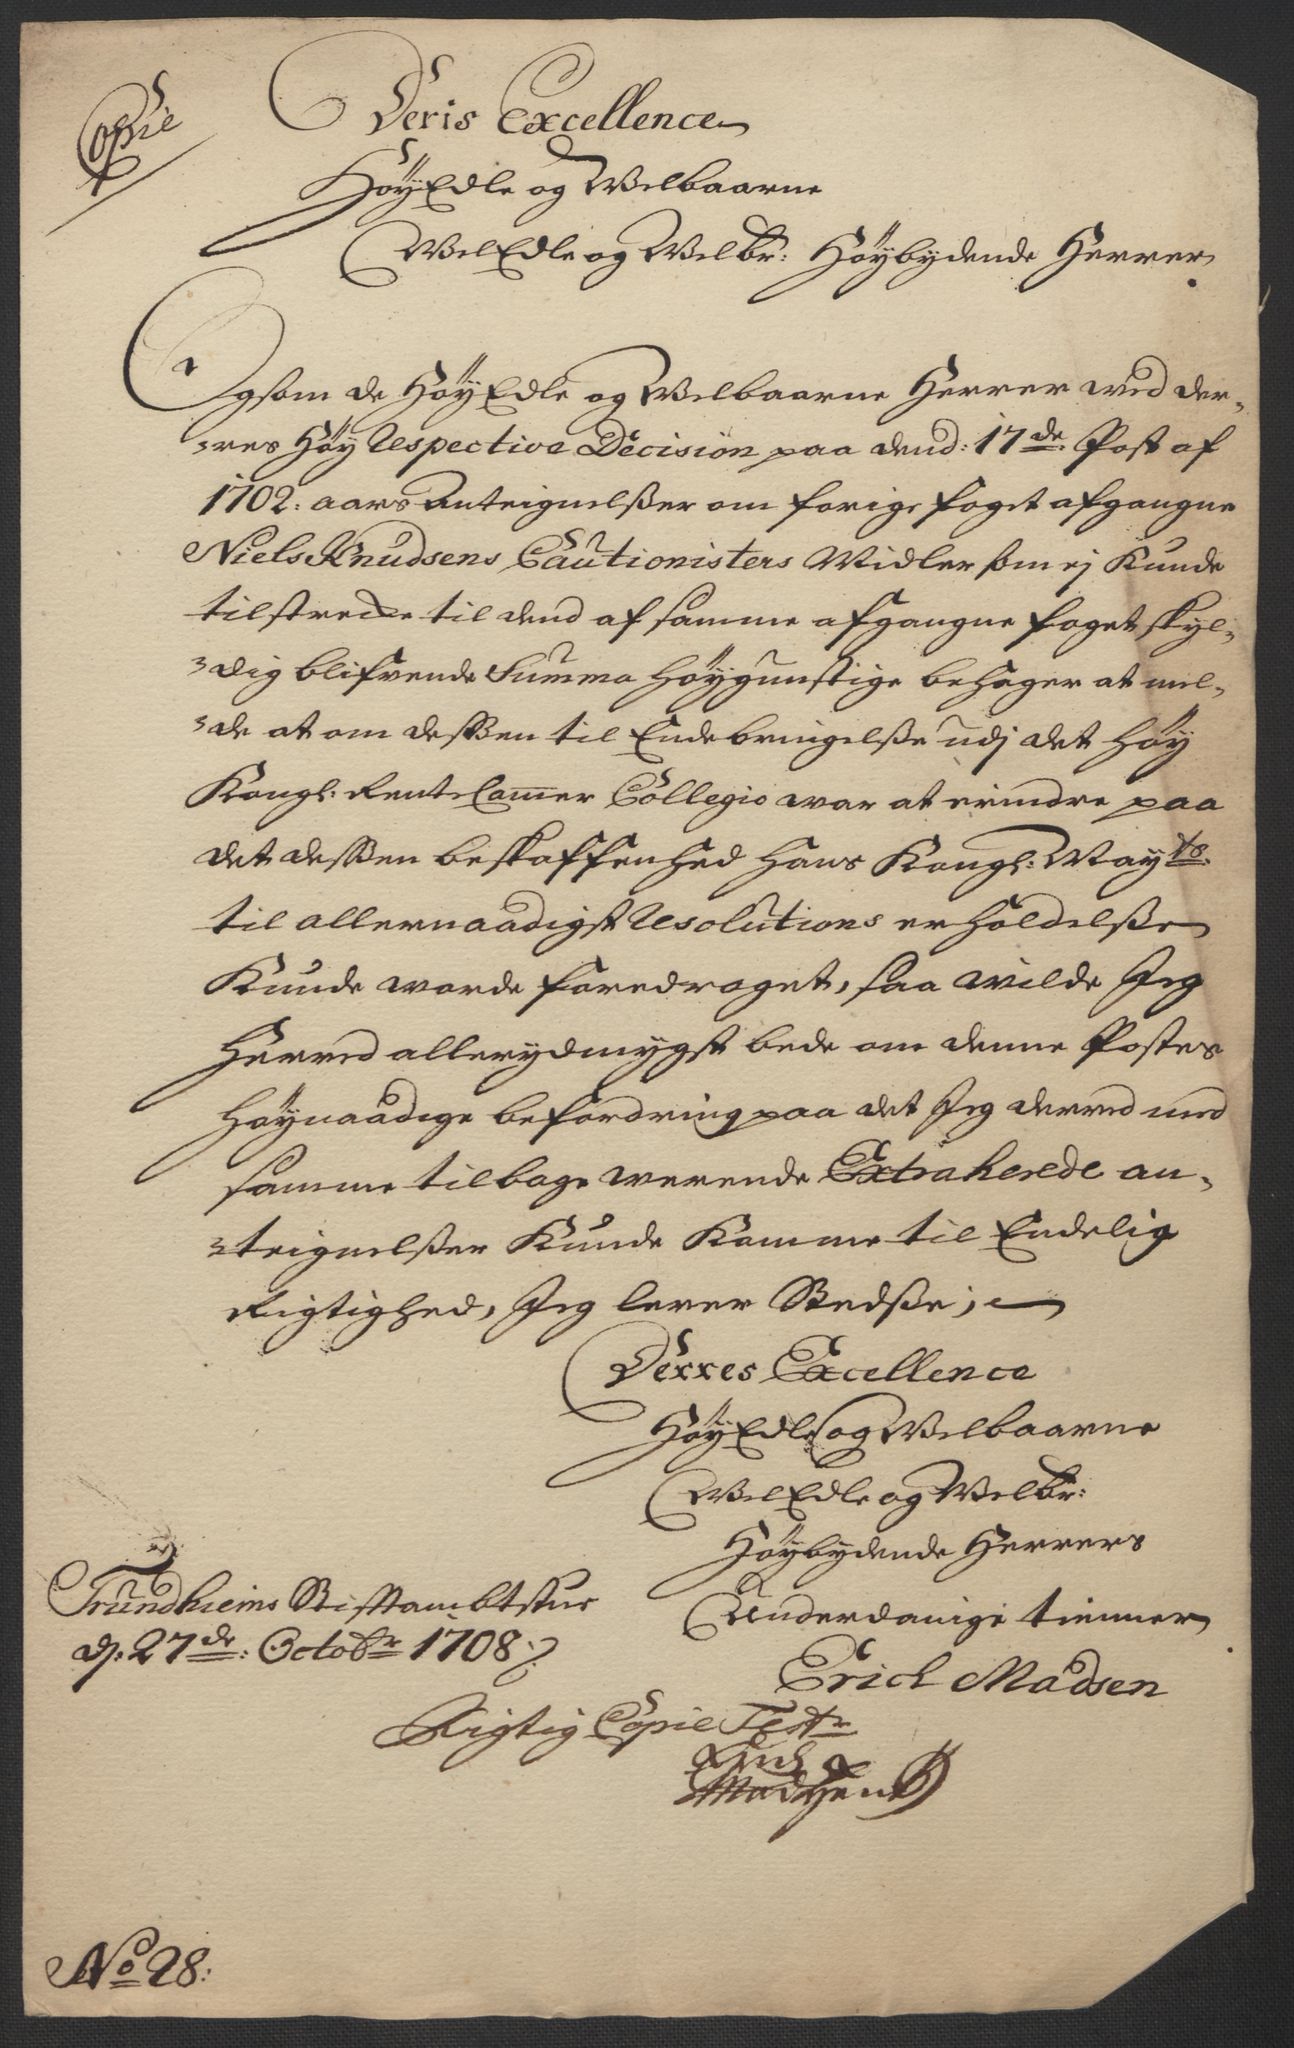 Copie
Deris Excellence
HøyEdle og Welbaarne
WelEdle og Welbr: Høybydende Herrer
Ligsom de HøyEdle og Welbaarne Herrer wed der-
-res Høy Respective Decision paa dend: 17de Post af
1702: aars Anteignelsser om forige foget afgangne
Niels Knudsens Cautionisters Midler som ej Kunde
tilstrecke til dend af samme afgangne foget skyl-
-dig blifvende Summa Høygunstige behager at mel-
-de at om dessen til Endebringelsse udj det høy
Kongl: Rente Camer Collegio war at erindre paa
det dessen beskaffenhed Hans Kongl: Mayts
til allernaadigst Resolutions erholdelsse
Kunde worde foredraget, saa wilde Jeg
Herved allerydmygst bede om denne Postes
høynaadige befordring paa det Jeg derved med
samme tilbage werende Extraherede an-
-teignelsser Kunde Komme til Endelig
Rigtighed, Jeg lever Stedsse,
Derres Excellence
HøyEdle og Welbaarne
WelEdle og Welbr:
Høybydende Herrers
Underdanige tienner
Trundhiems Stiftambtstue
dj: 27de: Octobr 1708
Erich Madsen
Rigtig Copie Testr
Erich
Madsen
No 28: